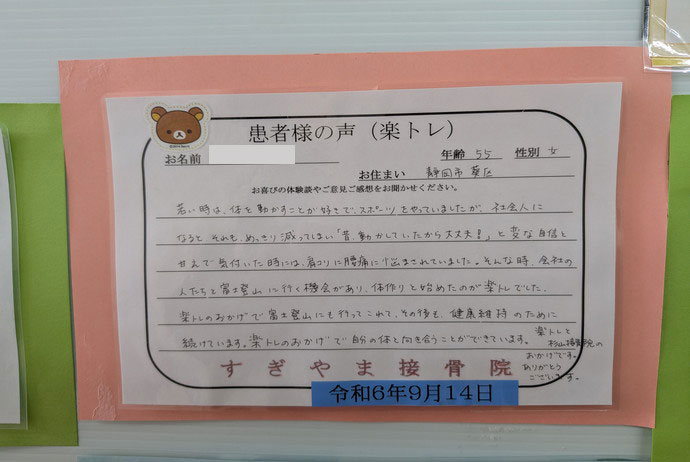 患者様の声（楽トレ）
お名前
年齢 55 性別 女
お住まい 静岡市 葵区
お喜びの体験談やご意見ご感想をお聞かせください。
若い時は、体を動かすことが好きで、スポーツをやっていましたが、社会人に
なると、それも、めっきり減ってしまい「昔、動かしていたから大丈夫！」と変な自信と
甘えで気付いた時には、肩コリに腰痛に悩まされていました。そんな時、会社の
人たちと富士登山に行く機会があり、体作りと始めたのが楽トレでした。
楽トレのおかげで富士登山にも行ってこれて、その後も、健康維持のために
続けています。楽トレのおかげで自分の体と向き合うことができています。
楽トレと
杉山接骨院の
おかげです。
ありがとう
ございます。
すぎやま接骨院
令和6年9月14日